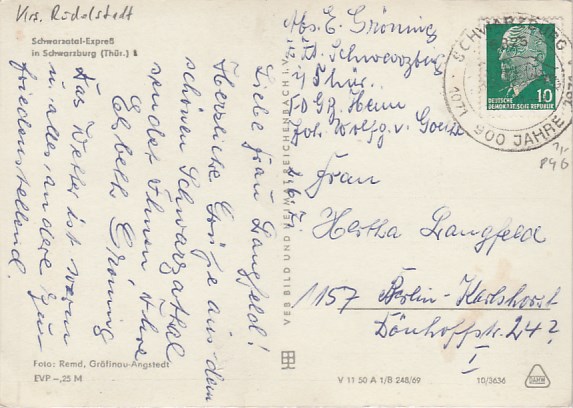 Krs. Rudolstadt
Schwarzatal-Expreß
in Schwarzburg (Thür.)
Liebe Frau Langfeld!
Herzliche Grüße aus dem
schönen Schwarzathal
sendet Ihnen Ihre
Elsbeth Gröning
Das Wetter ist warm
u. alles andere zu-
friedenstellend.
Abs. E. Gröning
z. Zt. Schwarzburg
i/ Thür.
Joh. Wolfg. v. Goethe
Frau
Hertha Langfeld
1157 Berlin-Karlshorst
Dönhoffstr. 24
I
SCHWARZBURG
1071 900 JAHRE 1971
DEUTSCHE
DEMOKRATISCHE REPUBLIK
10
VEB BILD UND HEIMAT REICHENBACH I. V.
Foto: Remd, Gräfinau-Angstedt
EVP –,25 M
V 11 50 A 1/B 248/69
10/3636